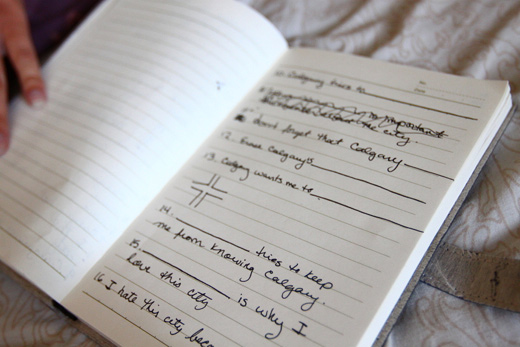 Calgary tries to
important
the city.
don't forget that Calgary
12. Calgary's
13. Calgary wants me to
14. tries to keep
me from knowing Calgary.
15. is why I
love this city
16 I hate this city bec